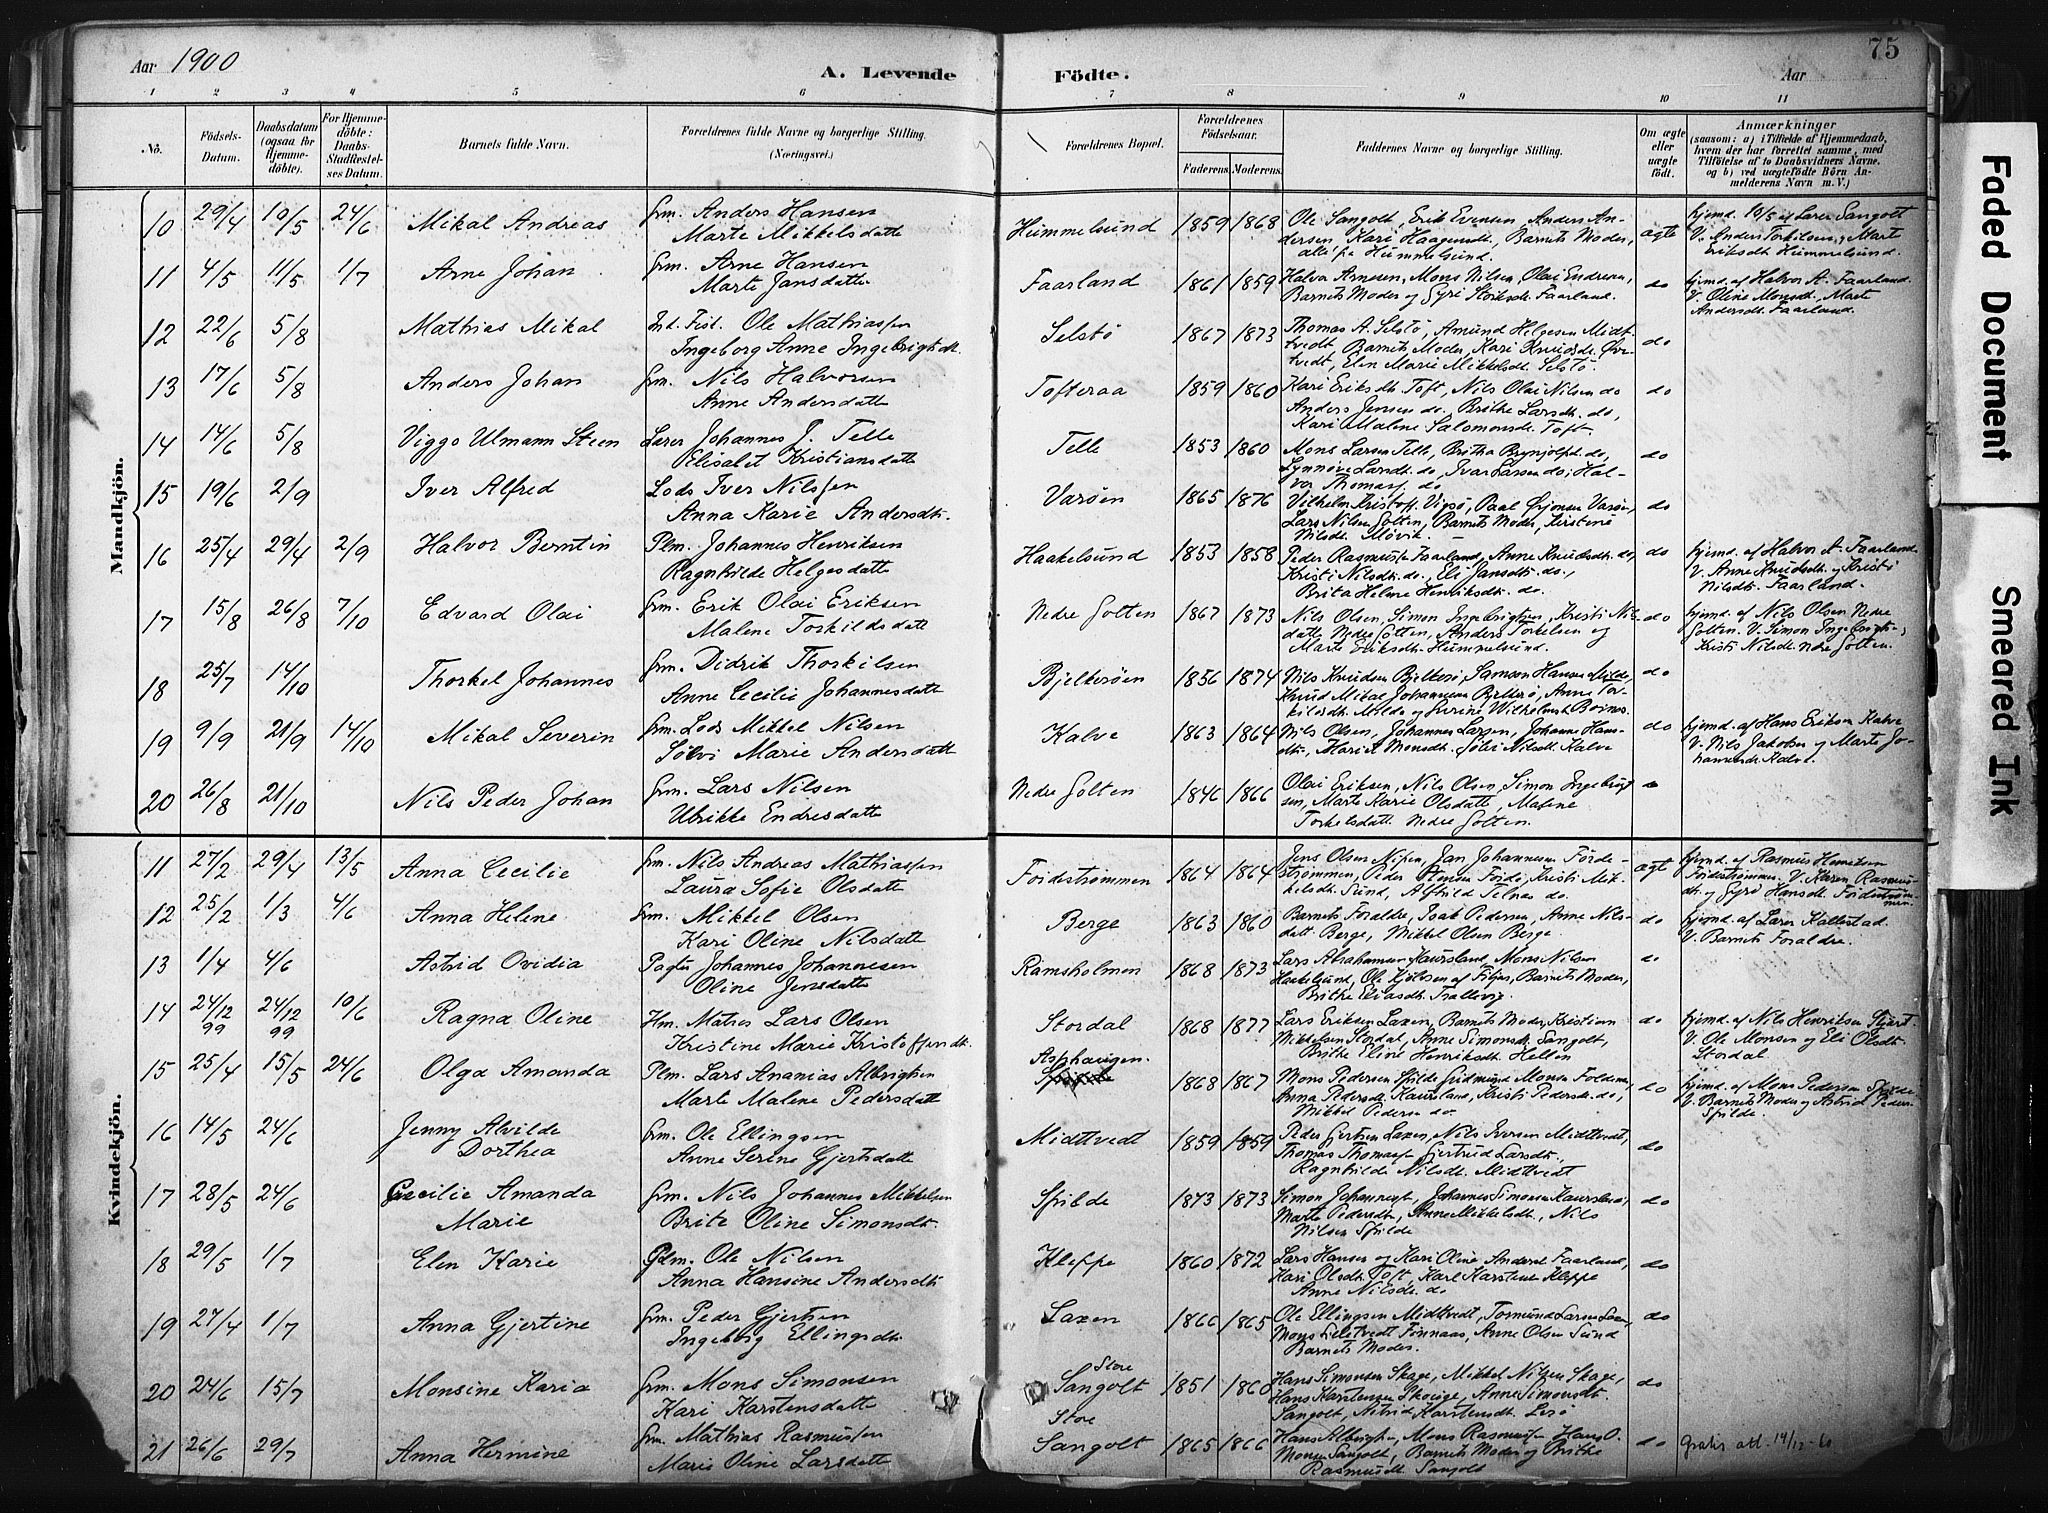 Aar 1900
A. Levende Födte.
Aar
75
1 2 3 4 5 6 7 8 9 10 11
No.
Födsels-Datum.
Daabsdatum (ogsaa for Hjemme-döbte).
For Hjemme-döbte: Daabs-Stadfæstel-ses Datum.
Barnets fulde Navn.
Forældrenes fulde Navne og borgerlige Stilling. (Næringsvei.)
Forældrenes Bopæl.
Forældrenes Födselsaar.
Faderens. Moderens.
Faddernes Navne og borgerlige Stilling.
Om ægte eller uægte födt.
Anmærkninger
(saasom: a) i Tilfælde af Hjemmedaab, hvem der har forrettet samme, med Tilföielse af to Daabsvidners Navne. og b) ved uægtefödte Börn An-melderens Navn m. V.)
Mandkjön.
10 29/4 10/5 24/6 Mikal Andreas Grm. Anders Hansen Marte Mikkelsdatte Hummelsund 1859 1868 Ole Sangolt, Erik Evensen, Anders An-dersen, Kari Haagensdt., Barnets Moder, alle fra Hummelsund. ægte hjemd. 10/5 af Lærer Sangolt V. Anders Torkilsen, Marte Eriksdt Hummelsund.
11 4/5 11/5 1/7 Arne Johan Grm. Arne Hansen Marte Jansdatte Faarland 1861 1859 Halvor Arnesen, Mons Nilsen, Olai Endresen, Barnets Moder og Gyri Storksdt. Faarland. do hjemd. af Halvor A. Faarland. V. Oline Monsdt., Marte Andersdt. Faarland.
12 22/6 5/8 Mathias Mikal Ind. Fisk. Ole Mathiassen Ingeborg Anne Ingebrigtsdt. Selstø 1867 1873 Thomas A. Selstø, Amund Helgesen Midt-tvedt, Barnets Moder, Kari Knudsdt. Øv-tvedt, Elen Marie Mikkelsdt Selstö do
13 17/6 5/8 Anders Johan Grm. Nils Halvorsen Anne Andersdatte Tofteraa 1859 1860 Kari Eriksdt. Toft, Nils Olai Nilsen do Anders Jensen do. Brithe Larsdt. do, Kari Malene Salomonsdt. Toft. do
14 14/6 5/8 Viggo Ulmann Steen Lærer Johannes J. Telle Elisabet Kristiansdatte Telle 1853 1860 Mons Larsen Telle, Britha Brynjolfsdt. do, Synnøve Larsdt. do, Ivar Larsen do, Hal-vor Thomass. do do
15 19/6 2/9 Iver Alfred Lods Iver Nilssen Anna Karie Andersdt. Varøen 1865 1876 Vilhelm Kristoff. Vigsø, Paal Ørjansen Varøen, Lars Nilsen Golten, Barnets Moder, Kirstine Nilsdt. Møvik. do
16 25/4 29/4 2/9 Halvor Berntin Plm. Johannes Henriksen Ragnhilde Helgesdatte Haakelsund 1853 1858 Peder Rasmussen Faarland, Anne Knudsdt. do, Kristi Nilsdt. do., Eli Jansdt. do., Brita Helene Henriksdt. do. do hjemd. af Halvor A. Faarland V. Anne Knudsdt. og Kristi Nilsdt. Faarland.
17 15/8 26/8 7/10 Edvard Olai Grm. Erik Olai Eriksen Malene Torkildsdatt Nedre Golten 1867 1873 Nils Olsen, Simon Ingebrigtsen, Kristi Nils-datte Nedre Golten, Anders Torkelsen og Marte Eriksdt. Hummelsund. do hjemd. af Nils Olsen Nedre Golten. V. Simon Ingebrigts., Kristi Nilsdt. Nedre Golten.
18 25/7 14/10 Thorkel Johannes Grm. Didrik Thorkilsen Anne Cecilie Johannesdatte Bjelkerøen 1856 1874 Nils Knudsen Bjelkerø, Samson Hansen Milde, Knud Mikal Johannesen Bjelkerø, Anne Tor-kilsdt. Milde do
19 9/9 21/9 14/10 Mikal Severin Grm. Lods Mikkel Nilsen Sølvi Marie Andersdatte Kalve 1863 1864 Nils Olsen, Johannes Larsen, Johanne Hans-dt., Marie Monsdt., Sølvi Nilsdt. Kalve do hjemd. af Hans Eriksen Kalve V. Nils Jakobsen og Marte Jo-hannesdt. Kalve.
20 26/8 21/10 Nils Peder Johan Grm. Lars Nilsen Ulrikke Endresdatte Nedre Golten 1846 1866 Olai Eriksen, Nils Olsen, Simon Ingebrigt-sen, Marte Karie Olsdatte, Malene Torkelsdatt. Nedre Golten. do
Kvindekjön.
11 27/2 29/4 13/5 Anna Cecilie Grm. Nils Andreas Mathiassen Laura Sofie Olsdatte Førdestrømmen 1864 1864 Jens Olsen Nipen, Jan Johannesen Förde-strømmen, Peder Førde, Kristi Mik-kelsdt. Sund, Alfhild Telnes do. ægt hjemd. af Rasmus Henriksen Førdestrømmen. V. Karen Rasmus-dt. og Gyri Hansdt. Førdestrømmen
12 25/2 1/3 4/6 Anna Helene Grm. Mikkel Olsen Kari Oline Nilsdatte Berge 1863 1860 Barnets Forældre, Isak Pedersen, Anne Nils-datt. Berge, Mikkel Olsen Berge. do hjemd. af Lærer Kallestad. V. Barnets Forældre.
13 1/4 4/6 Astrid Ovidia Pagter Johannes Johannesen Oline Jensdatte Ramsholmen 1868 1873 Lars Abrahamsen Kaursland, Mons Nilsen Haakelsund, Ole Barnets Moder, Brithe Eliasdt. Trællevig. do
14 24/12 99 24/12 99 10/6 Ragna Oline Hm. Matros Lars Olsen Kristine Marie Kristoffersdt. Stordal 1868 1877 Lars Eriksen Laxen, Barnets Moder, Kristian Mikkelsen Stordal, Anne Simonsdt. Sangolt, Brithe Eline Henriksdt. Hellen do hjemd. af Nils Henriksen V. Ole Monsen og Eli Olsdt. Stordal
15 25/4 15/5 24/6 Olga Amanda Plm. Lars Ananias Albrigtsen Marte Malene Pedersdatte Asphaugen 1868 1867 Mons Pedersen Spilde, Gudmund Monsen Foldenes, Anna Pedersdt. Kaursland, Kristi Pedersdt. do, Mikkel Pedersen do. do hjemd. af Mons Pedersen Spilde V. Barnets Moder og Astrid Peders. Spilde.
16 14/5 24/6 Jenny Alvilde Dorthea Grm. Ole Ellingsen Anne Serine Gjertsdatte Midttvedt 1859 1859 Peder Gjertsen Laxen, Nils Iversen Midttvedt, Thomas Thomassen, Gjertrud Larsdt., Ragnhilde Nilsdt. Midttvedt do
17 28/5 24/6 Cecilie Amanda Marie Grm. Nils Johannes Mikkelsen Brite Oline Simonsdt. Spilde 1873 1873 Simon Johannes, Johannes Simonsen Kaursland, Marte Pedersdt., Anne Mikkelsdt., Nils Nilsen Spilde do
18 29/5 1/7 Elen Karie Plm. Ole Nilsen Anna Hansine Andersdt. Kleppe 1860 1872 Lars Hansen og Kari Oline Andersd Faarland, Kari Olsdt. Toft, Karl Karstens Kleppe Anne Nilsdt. do do
19 27/4 1/7 Anna Gjertine Grm. Peder Gjertsen Ingeborg Ellingsdt. Laxen 1866 1865 Ole Ellingsen Midttvedt, Tormund Larsen Laxen, Mons Finnaas, Anne Olsen Sund Barnets Moder. do
20 24/6 15/7 Monsine Karia Grm. Mons Simonsen Kari Karstensdatte Store Sangolt 1851 1860 Hans Simonsen Skage, Mikkel Nilsen Skage, Hans Karstensen Skoige, Anne Simonsdt. Sangolt, Astrid Karstensdt. Lerø do
21 26/6 29/7 Anna Hermine Grm. Mathias Rasmussen Marie Oline Larsdatte Store Sangolt 1865 1866 Hans Albrigtsen, Mons Rasmussen, Hans O. Monsen Sangolt, Barnets Moder og Brithe Rasmusdt Sangolt do Gratis att. 14/12-60
Faded Document
Smeared Ink